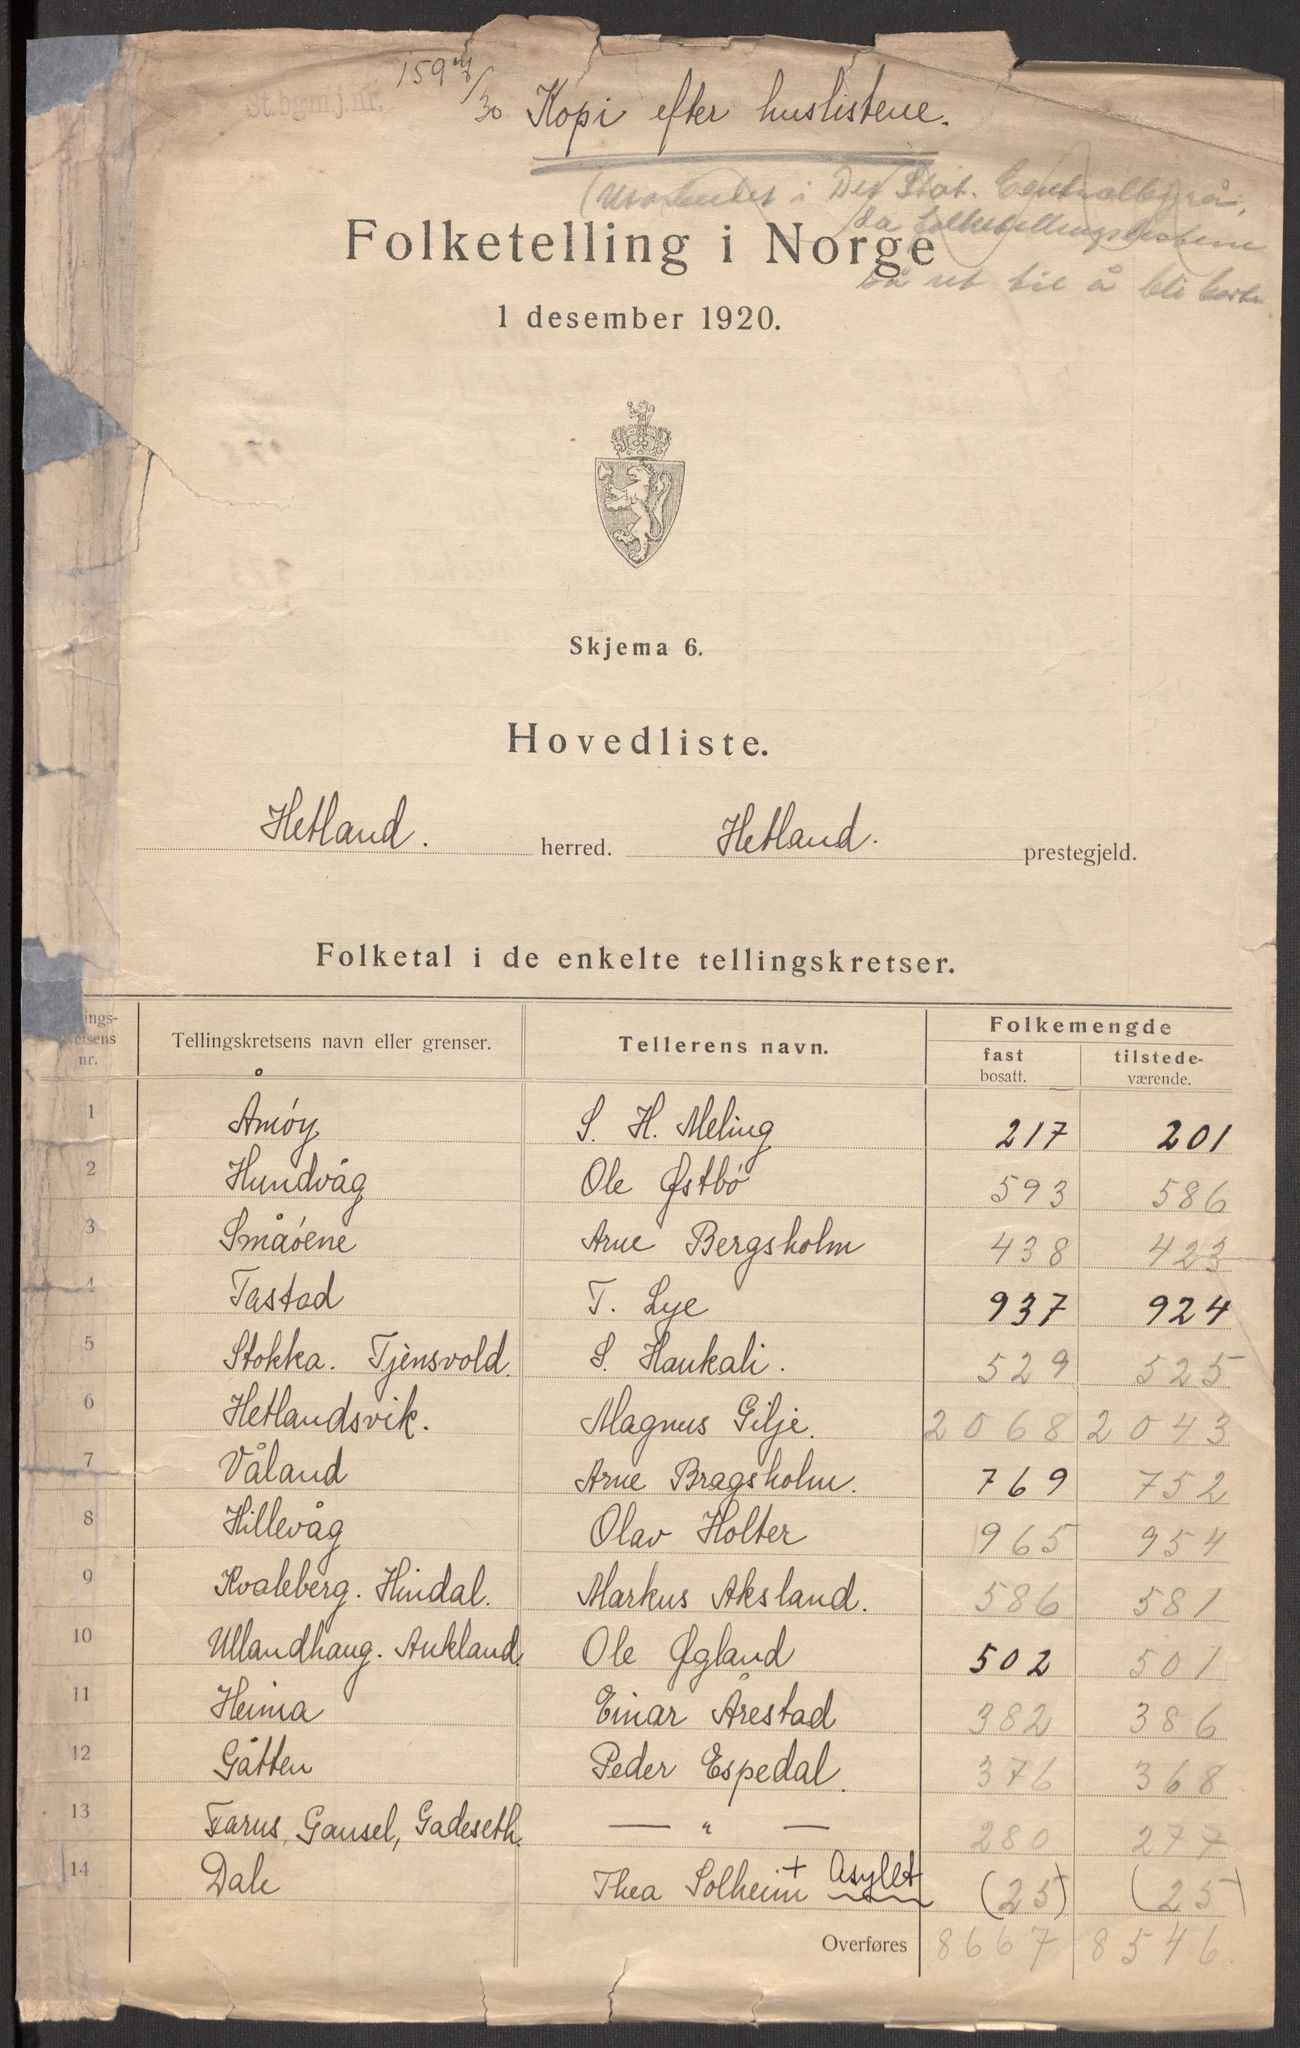 St.bgm.j.nr.
159 /30 Kopi efter huslistene.
(Utarbeidet i Det Stat. Centralbyrå,
da folketellingslistene
så ut til å bli borte
Folketelling i Norge
1 desember 1920.
Skjema 6.
Hovedliste.
Hetland. herred. Hetland. prestegjeld.
Folketal i de enkelte tellingskretser.
nr. Tellingskretsens navn eller grenser. Tellerens navn. Folkemengde
fast bosatt. tilstede-værende.
1 Åmøy S. H. Meling 217 201
2 Hundvåg Ole Østbö 593 586
3 Småöene Arne Bergsholm 438 423
4 Tastad T. Lye 937 924
5 Stokka. Tjensvold. S. Haukali. 529 525
6 Hetlandsvik. Magnus Gilje. 2068 2043
7 Våland Arne Bragsholm. 769 752
8 Hillevåg Olav Holter 965 954
9 Kvaleberg. Hindal. Markus Aksland. 586 581
10 Ullandhaug. Aukland. Ole Øgland 502 501
11 Heima Einar Årestad 382 386
12 Gåtten Peder Espedal. 376 368
13 Farus, Gausel, Gadeseth. — " — 280 277
14 Dale Thea Solheim + Asylet (25) (25)
Overføres 8667 8546